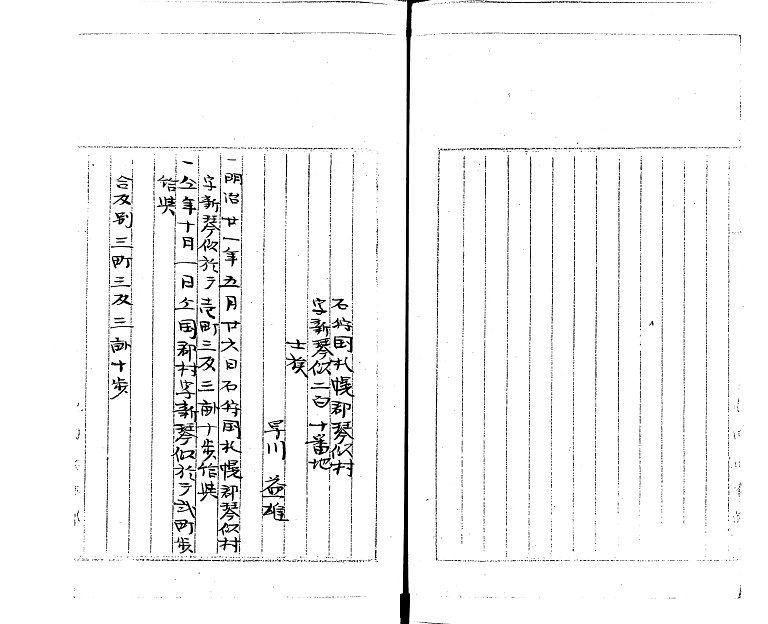 石狩国札幌郡琴似村
字新琴似二百十番地
士族
早川 益雄
一明治廿一年五月廿六日石狩国札幌郡琴似村
字新琴似於テ壱町三反三畝十歩給与
一仝年十月一日仝国郡村字新琴似於テ弐町歩
給与
合反別三町三反三畝十歩